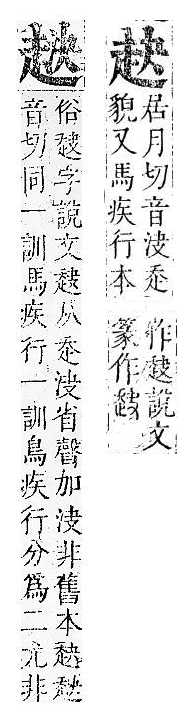 赽
居月切音決走
貌又馬疾行本
作說文
篆作
赽
俗字說文从走決省聲加決非舊本
音切同一訓馬疾行一訓鳥疾行分爲二尤非